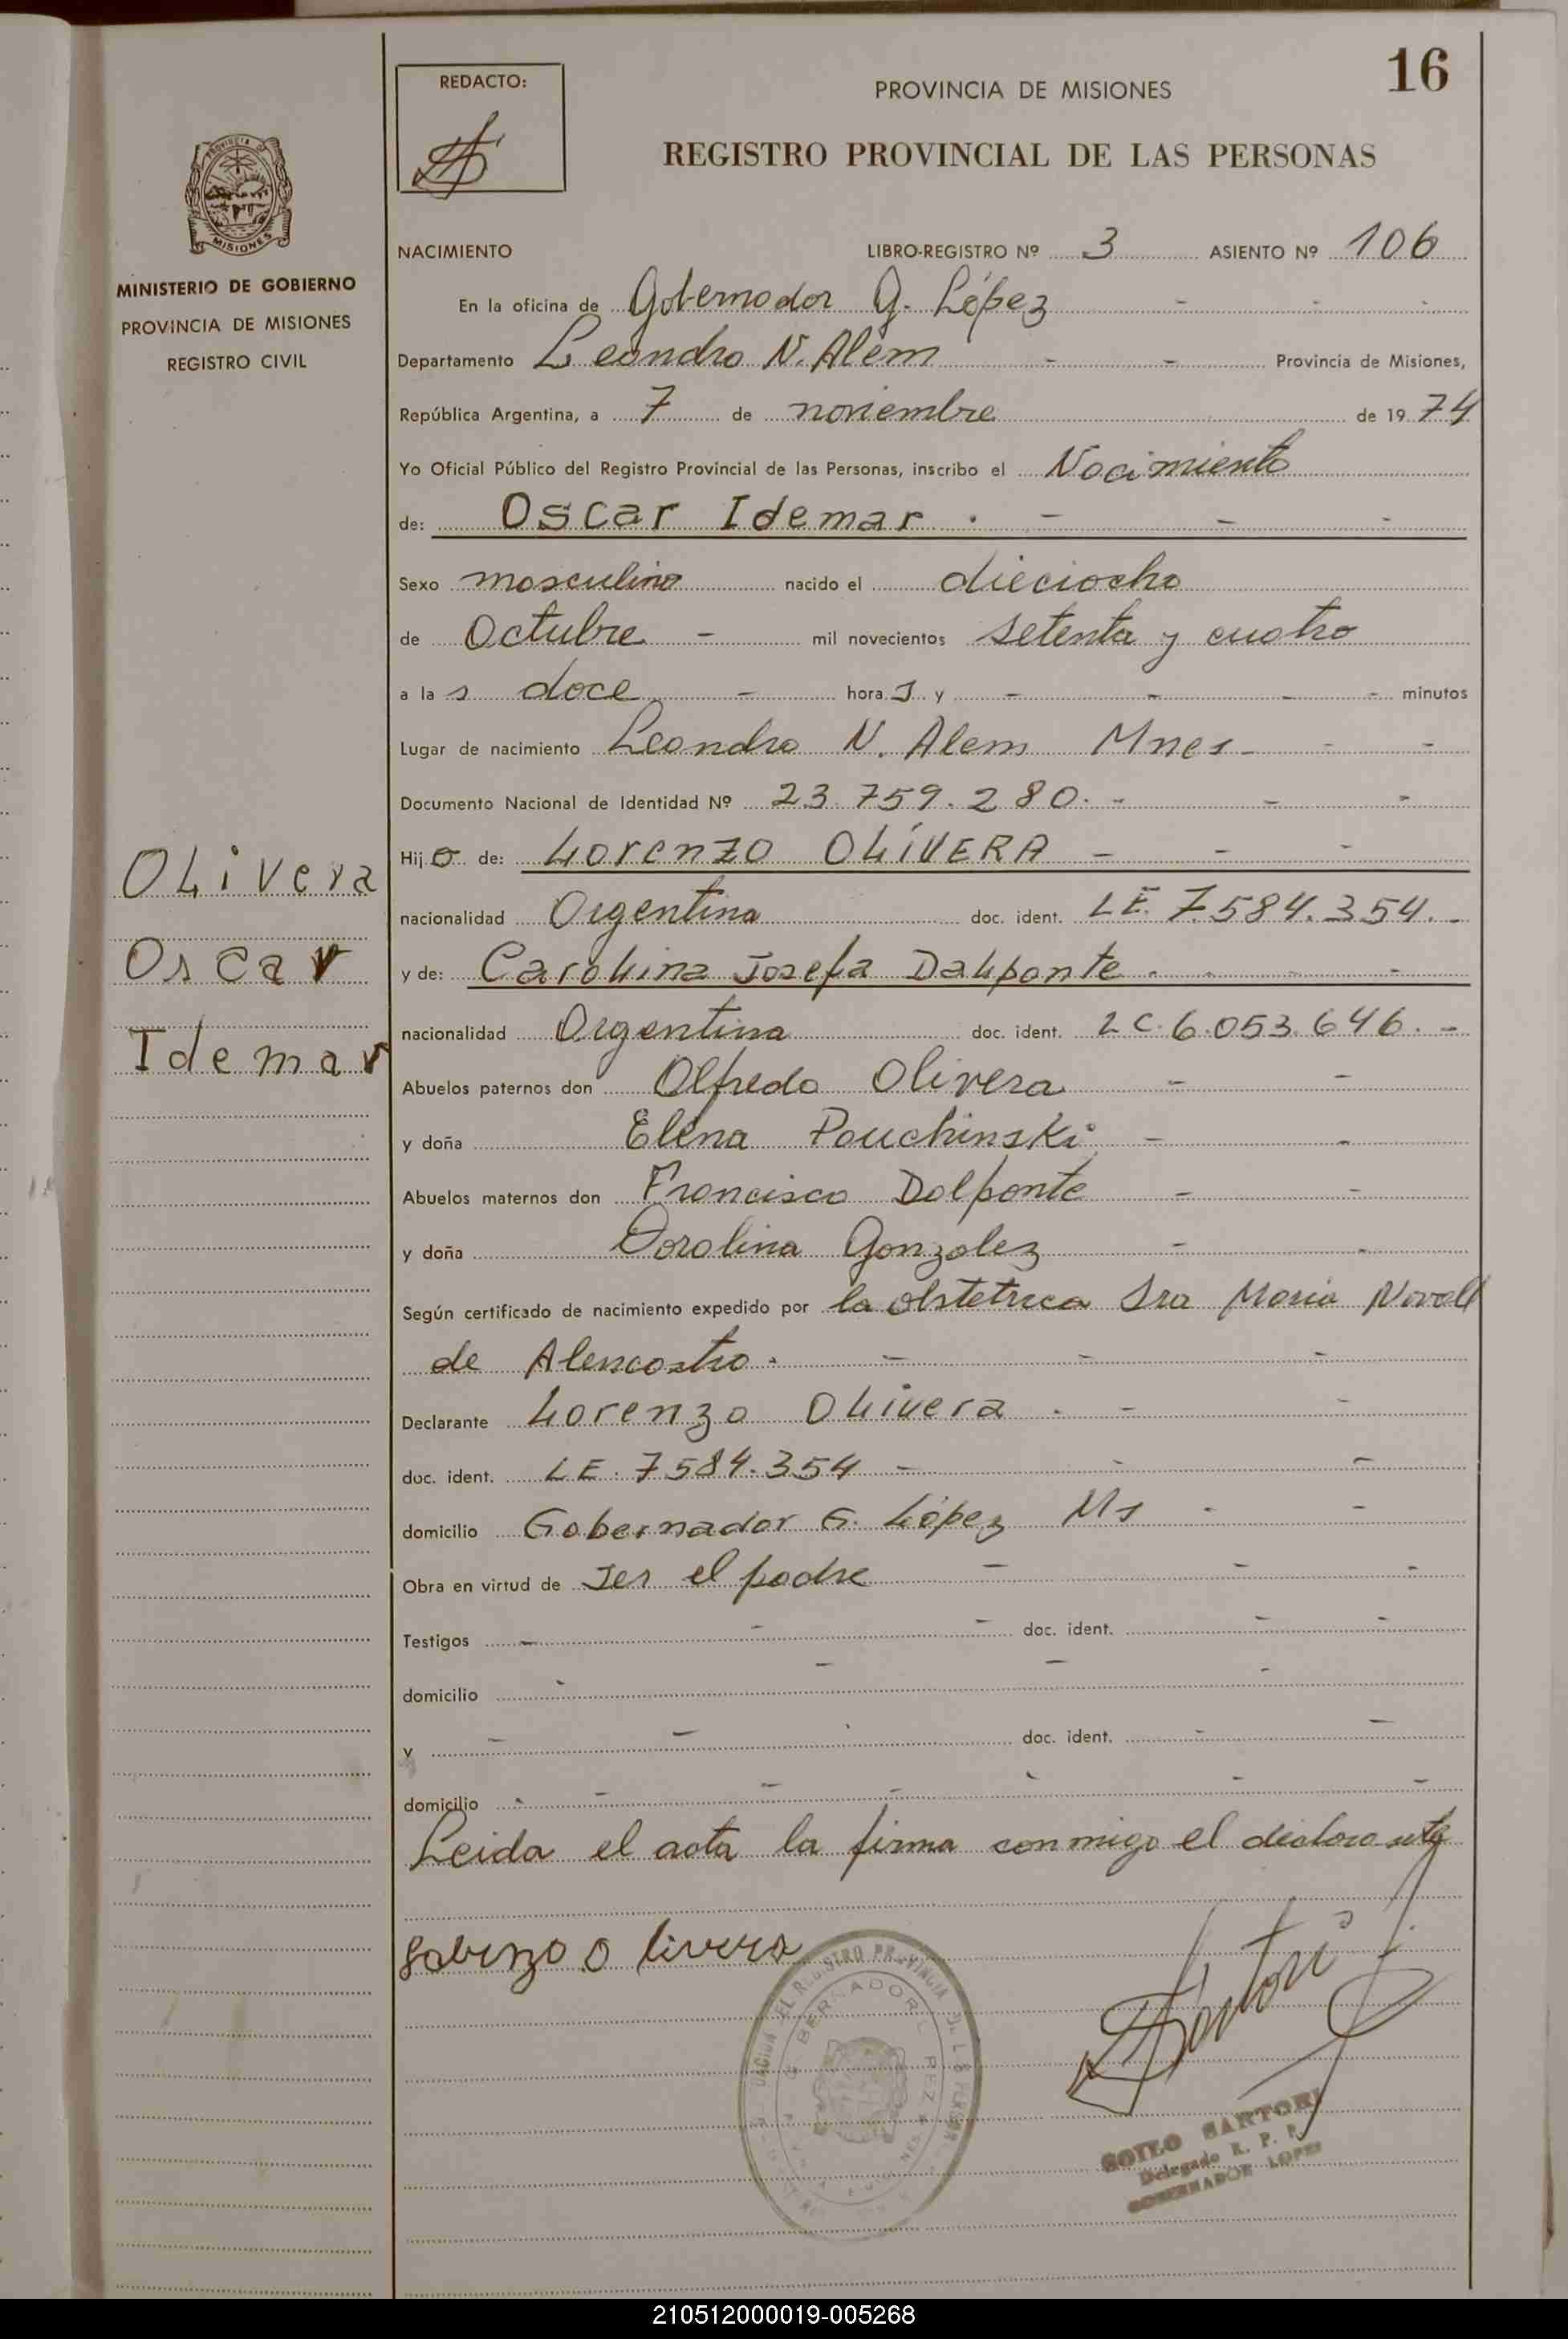 16
REDACTO:
PROVINCIA DE MISIONES
REGISTRO PROVINCIAL DE LAS PERSONAS
PROVINCIA DE
MISIONES
MINISTERIO DE GOBIERNO
PROVINCIA DE MISIONES
REGISTRO CIVIL
NACIMIENTO LIBRO-REGISTRO Nº 3 ASIENTO Nº 106
En la oficina de Gobernador G. López - - -
Departamento Leandro N. Alem - - Provincia de Misiones,
República Argentina, a 7 de noviembre de 19 74
Yo Oficial Público del Registro Provincial de las Personas, inscribo el Nacimiento
de: Oscar Idemar . - - -
Sexo masculino nacido el dieciocho
de Octubre - mil novecientos setenta y cuatro
a la s doce - hora s y - - - - minutos
Lugar de nacimiento Leandro N. Alem Mnes - - -
Documento Nacional de Identidad Nº 23.759.280. - - -
Hij o de: Lorenzo OLÍVERA - - -
nacionalidad Argentina doc. ident. LE. 7.584.354. -
y de: Carolina Josefa Dalponte . - - -
nacionalidad Argentina doc. ident. LC. 6.053.646. -
Abuelos paternos don Alfredo Olivera - -
y doña Elena Pauchinski - -
Abuelos maternos don Francisco Dalponte - -
y doña Carolina Gonzalez - -
Según certificado de nacimiento expedido por la obstetrica Sra Maria
de Alencastro. - - -
Declarante Lorenzo Olivera . - -
doc. ident. LE. 7.584.354 - - -
domicilio Gobernador G. López Ms - -
Obra en virtud de ser el padre - - -
Testigos - - - doc. ident. - -
domicilio - - - -
y - - - doc. ident. - -
domicilio - - - - - -
Leida el acta la firma conmigo el declarante
OLivera
Oscar
Idemar
Lorenzo Olivera
Sartori
SOILO SARTORI
Delegado R. P. P.
GOBERNADOR LOPEZ
210512000019-005268